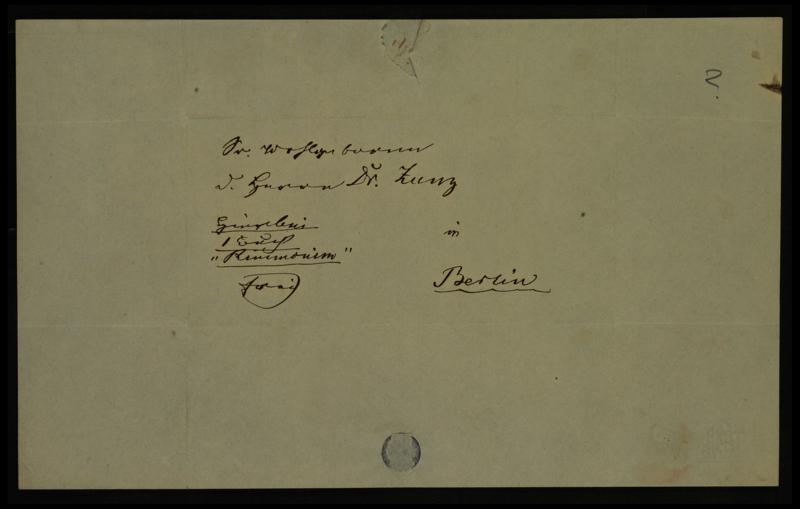 2.
Sr. Wohlgeboren
d. Herrn Dr. Zunz
Hierbei
1 Buch
"Rimmonim"
in
frei
Berlin